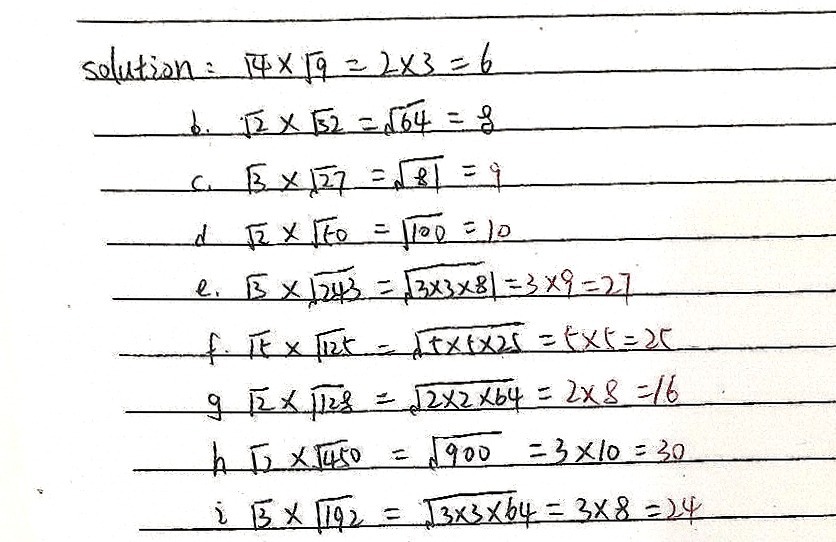 solution: √4 × √9 = 2×3 = 6
b. √2 × √32 = √64 = 8
c. √3 × √27 = √81 = 9
d √2 × √50 = √100 = 10
e. √3 × √243 = √3×3×81 = 3×9 = 27
f. √5 × √125 = √5×5×25 = 5×5 = 25
g √2 × √128 = √2×2×64 = 2×8 = 16
h √2 × √450 = √900 = 3×10 = 30
i √3 × √192 = √3×3×64 = 3×8 = 24